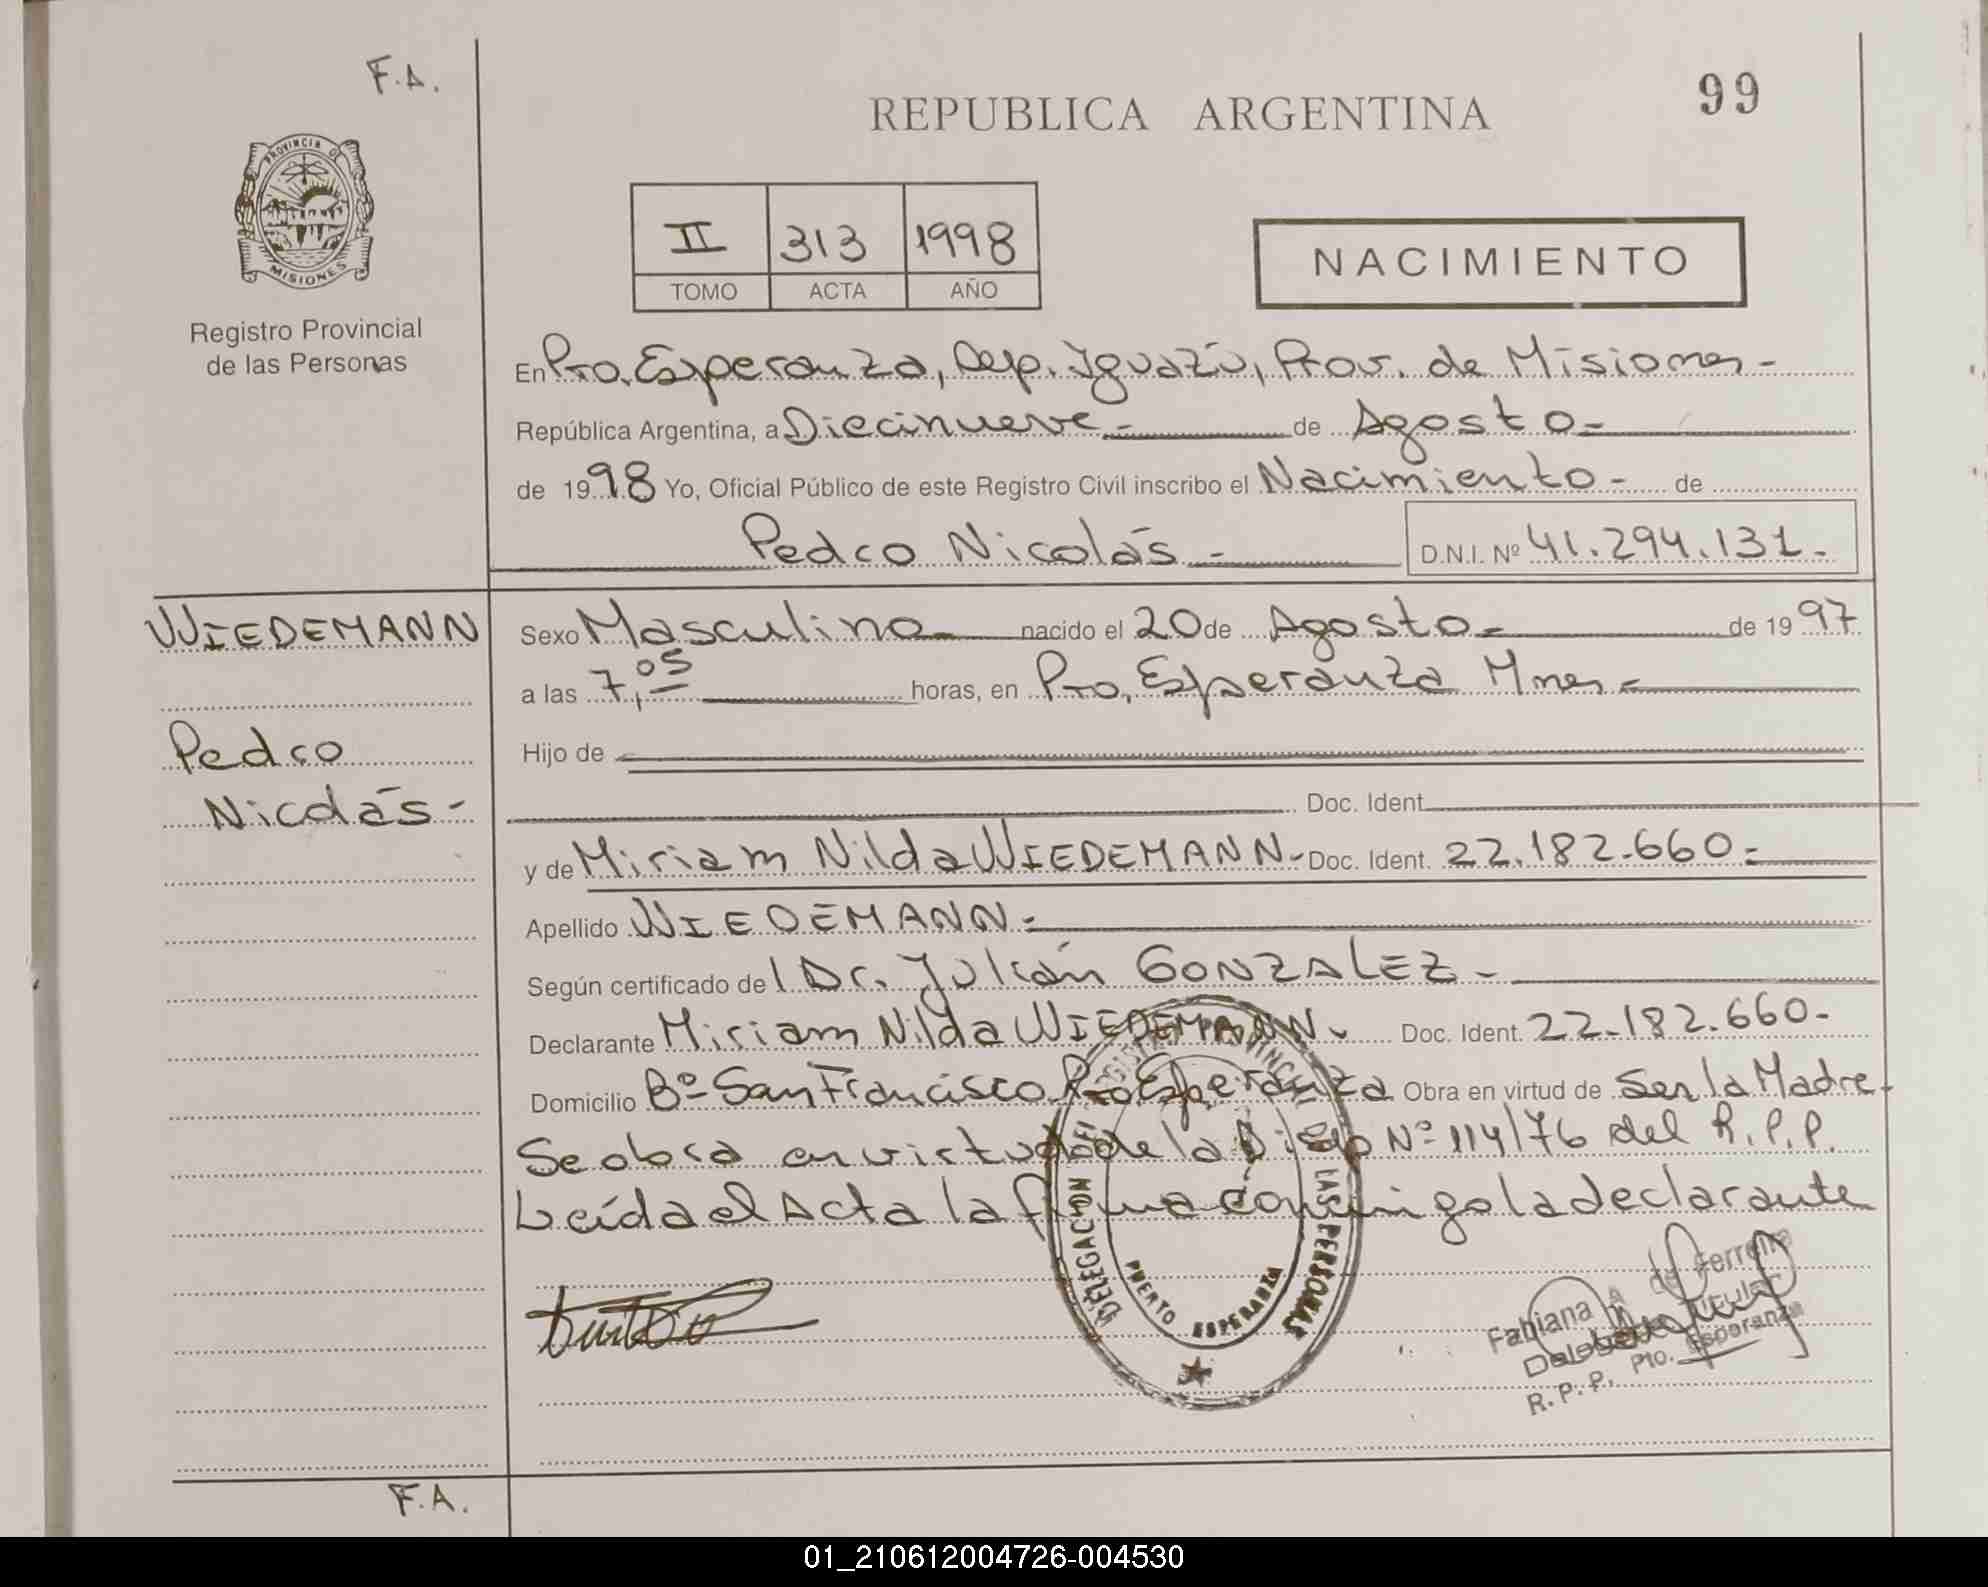 F.A.
99
REPUBLICA ARGENTINA
PROVINCIA DE
MISIONES
Registro Provincial
de las Personas
II 313 1998
TOMO ACTA AÑO
NACIMIENTO
En Pto. Esperanza, Dep. Iguazú, Prov. de Misiones -
República Argentina, a Diecinueve - de Agosto -
de 1998 Yo, Oficial Público de este Registro Civil inscribo el Nacimiento - de
Pedro Nicolás - D.N.I. Nº 41.294.131.-
WIEDEMANN
Pedro
Nicolás -
Sexo Masculino - nacido el 20 de Agosto - de 1997
a las 7,05 horas, en Pto. Esperanza Mnes -
Hijo de
Doc. Ident.
y de Miriam Nilda WIEDEMANN - Doc. Ident. 22.182.660 -
Apellido WIEDEMANN -
Según certificado del Dr. Julián GONZALEZ -
Declarante Miriam Nilda WIEDEMANN - Doc. Ident. 22.182.660 -
Domicilio Bº San Francisco Pto Esperanza Obra en virtud de Ser la Madre -
Se obra en virtud de la Disp Nº 114/76 del R.P.P.
Leída el Acta la firma conmigo la declarante
DELEGACION
REGISTRO PROVINCIAL DE LAS PERSONAS
PUERTO ESPERANZA
Fabiana A de Ferreira
Delegada Titular
R.P.P. Pto. Esperanza
F.A.
01_210612004726-004530